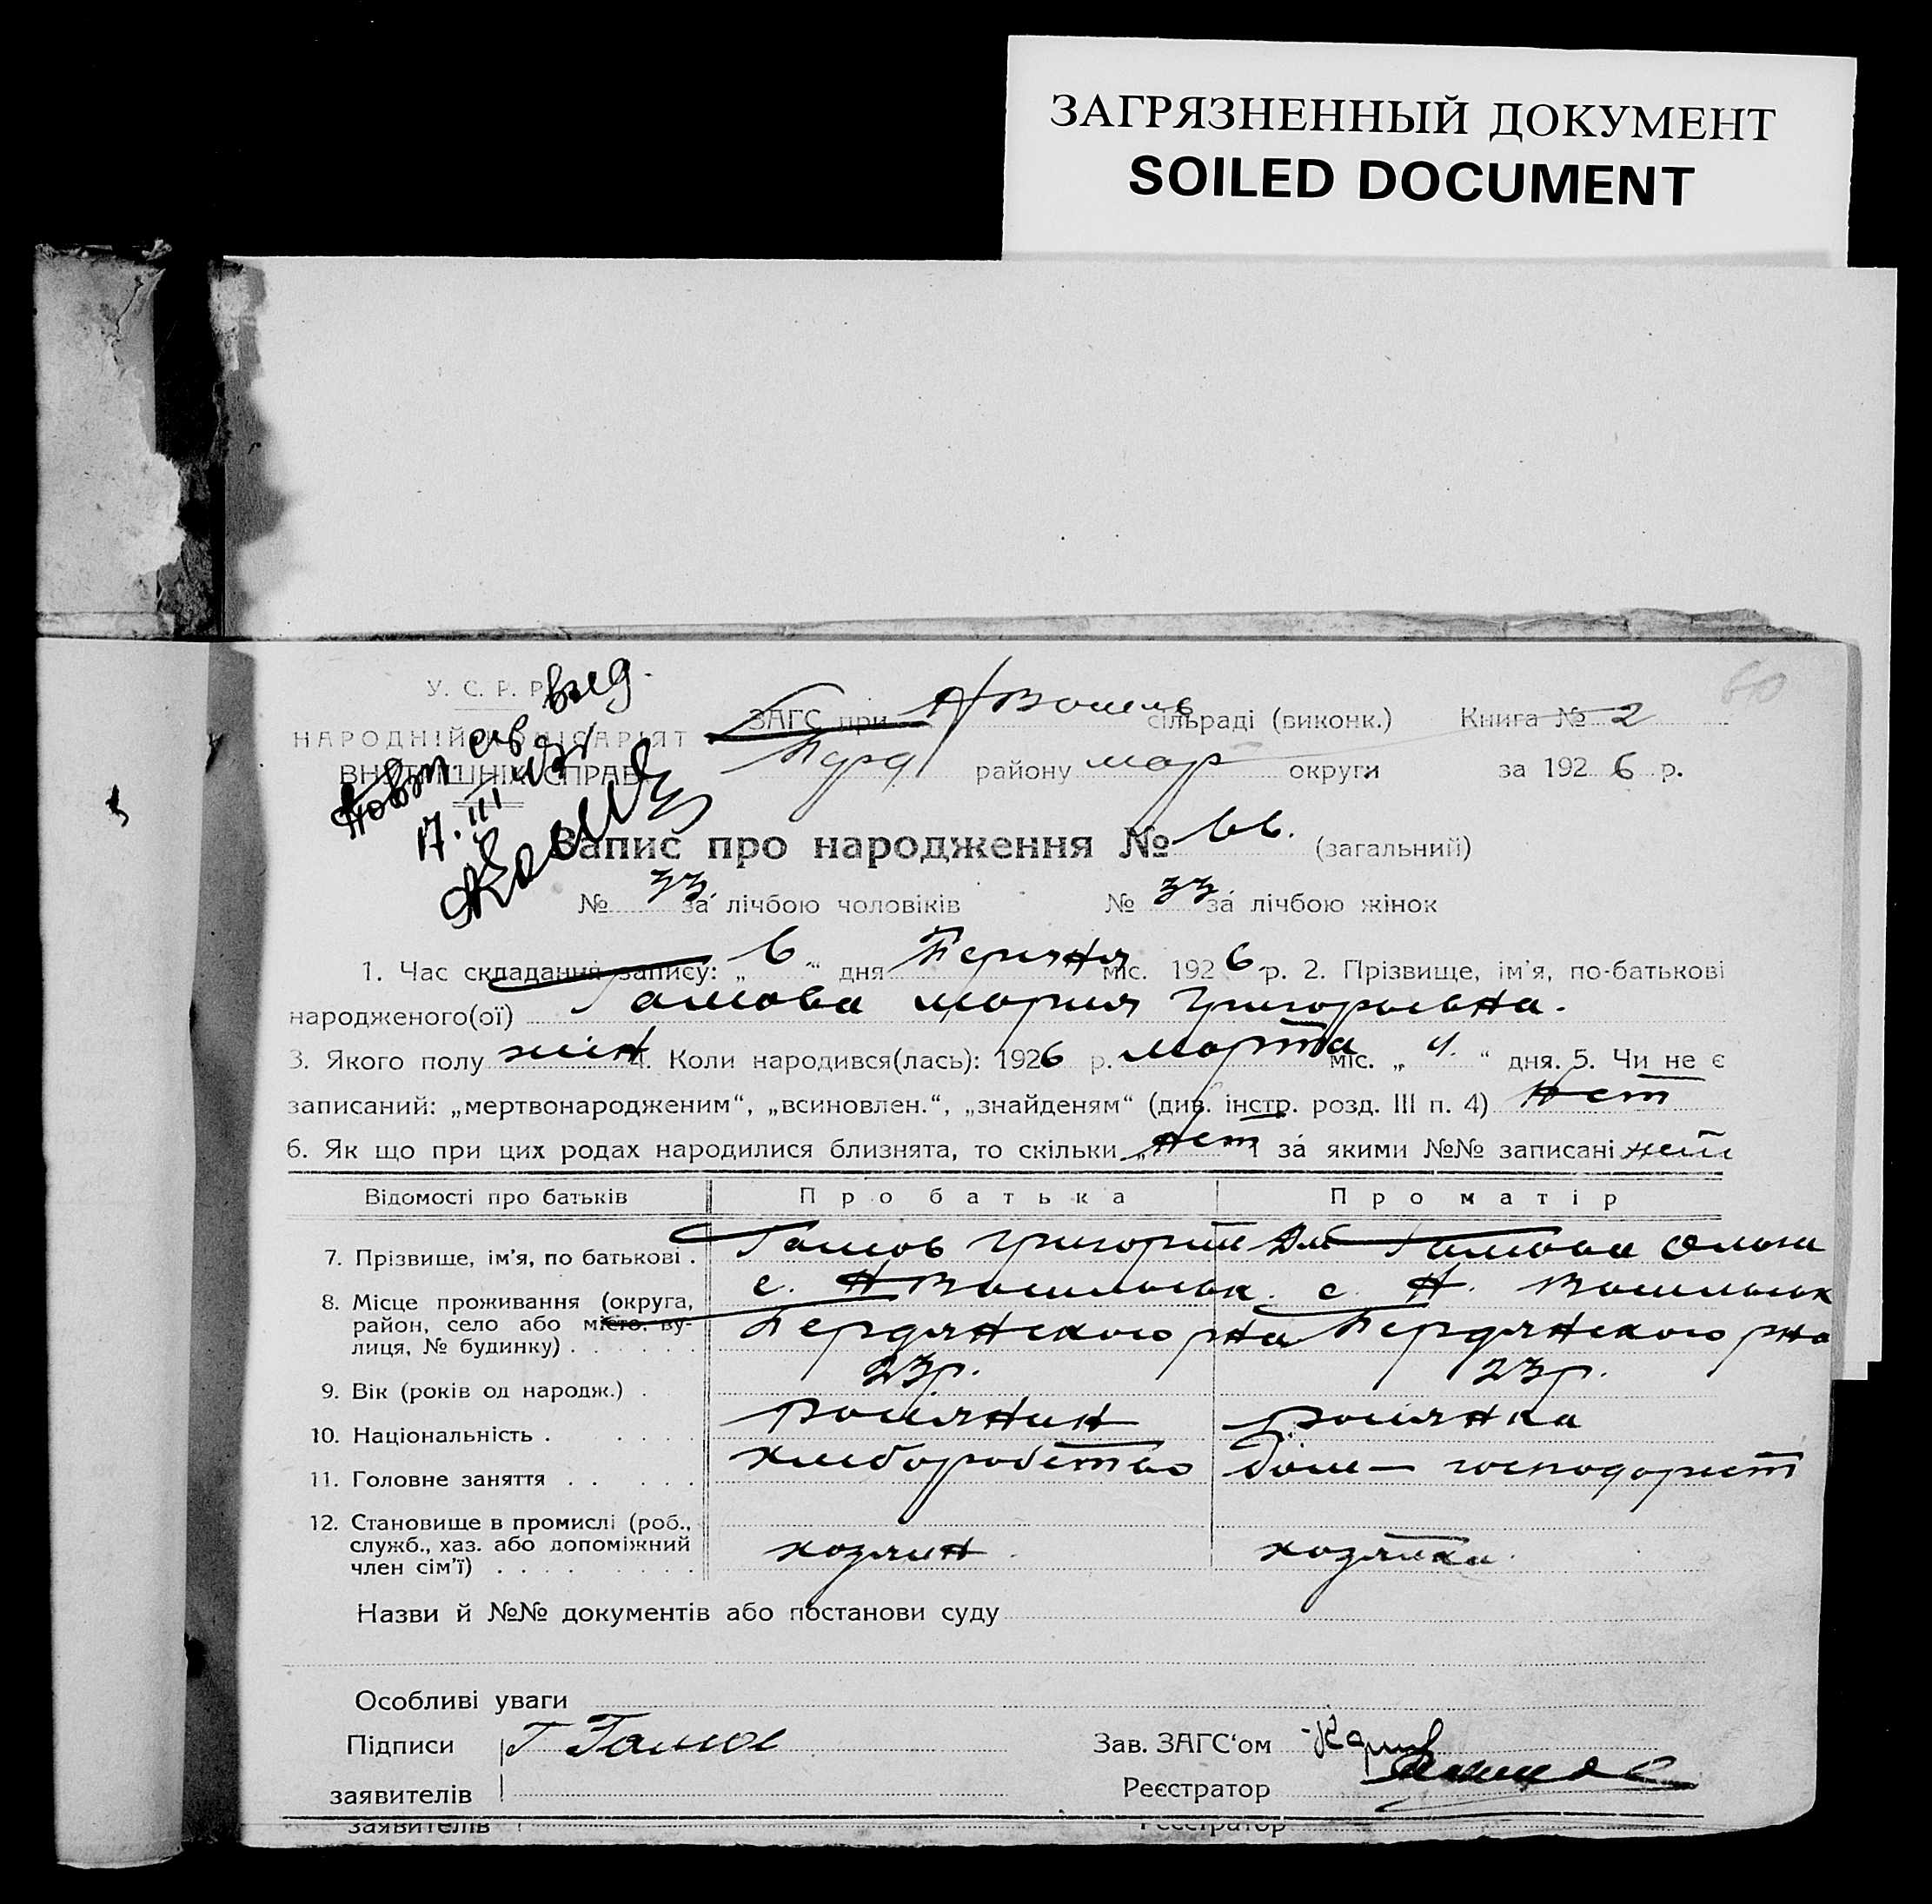 ЗАГРЯЗНЕННЫЙ ДОКУМЕНТ
SOILED DOCUMENT
60
У. С. Р. Р.
НАРОДНІЙ КОМІСАРІЯТ
ВНУТРІШНІХ СПРАВ
17. III
ЗАГС при сільраді (виконк.) Книга № 2
району мар округи за 1926 р.
Запис про народження № 66. (загальний)
№ 33. за лічбою чоловіків № 33 за лічбою жінок
1. Час складання запису: „ 6 “ дня міс. 1926 р. 2. Прізвище, ім’я, по-батькові
народженого(ої) Гамова Мария Григорьевна.
3. Якого полу жін 4. Коли народився(лась): 1926 р. марта міс. „ 4. “ дня. 5. Чи не є
записаний: „мертвонародженим“, „всиновлен.“, „знайденям“ (див. інстр. розд. III п. 4) нет
6. Як що при цих родах народилися близнята, то скільки „ нет і за якими №№ записані нет
Відомості про батьків Про батька Про матір
7. Прізвище, ім’я, по батькові . Гамов Григорий Дм Гамова
8. Місце проживання (округа, район, село або місто, вулиця, № будинку) с. Н Васильевк. с. Н. Васильевк
Бердянского рна Бердянского рна
9. Вік (років од народж.) . 23 р. 23 р.
10. Національність . росиянин росиянка
11. Головне заняття . . хлеборобство дом- господарст
12. Становище в промислі (роб.,
служб., хаз. або допоміжний
член сім’ї) хозяин. хозяйка.
Назви й №№ документів або постанови суду
Особливі уваги
Підписи Г Гамов Зав. ЗАГС‘ом
заявителів Реєстратор
заявителів Реєстратор